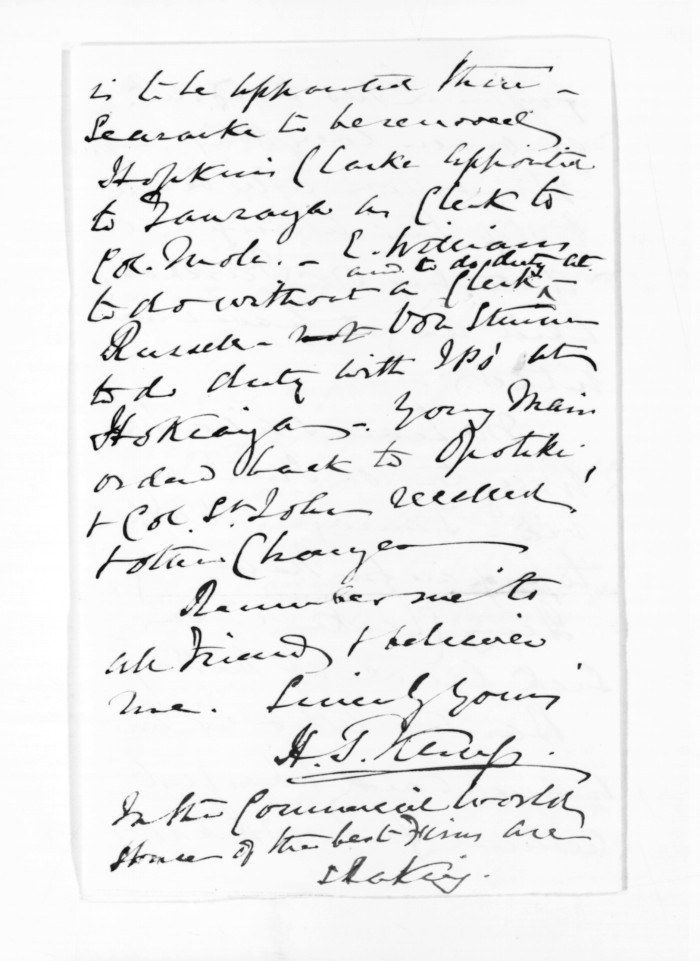 is to be appointed there -
Searancke to be removed
Hopkins Clarke appointed
to Tauranga as Clerk to
Col. Mole. - E. Williams
and to do duty at
to do without a Clerk ^ -
Russell - not Von Sturmer
to do duty with I P s at
Hokianga -. Young Mair
ordered back to Opotiki,
& Col. St. John recalled!
& other Changes
Remember me to
all Friends & believe
me. Sincerely yours
H. T. Kemp.
In the Commercial World,
some of the best Firms are
shaking.